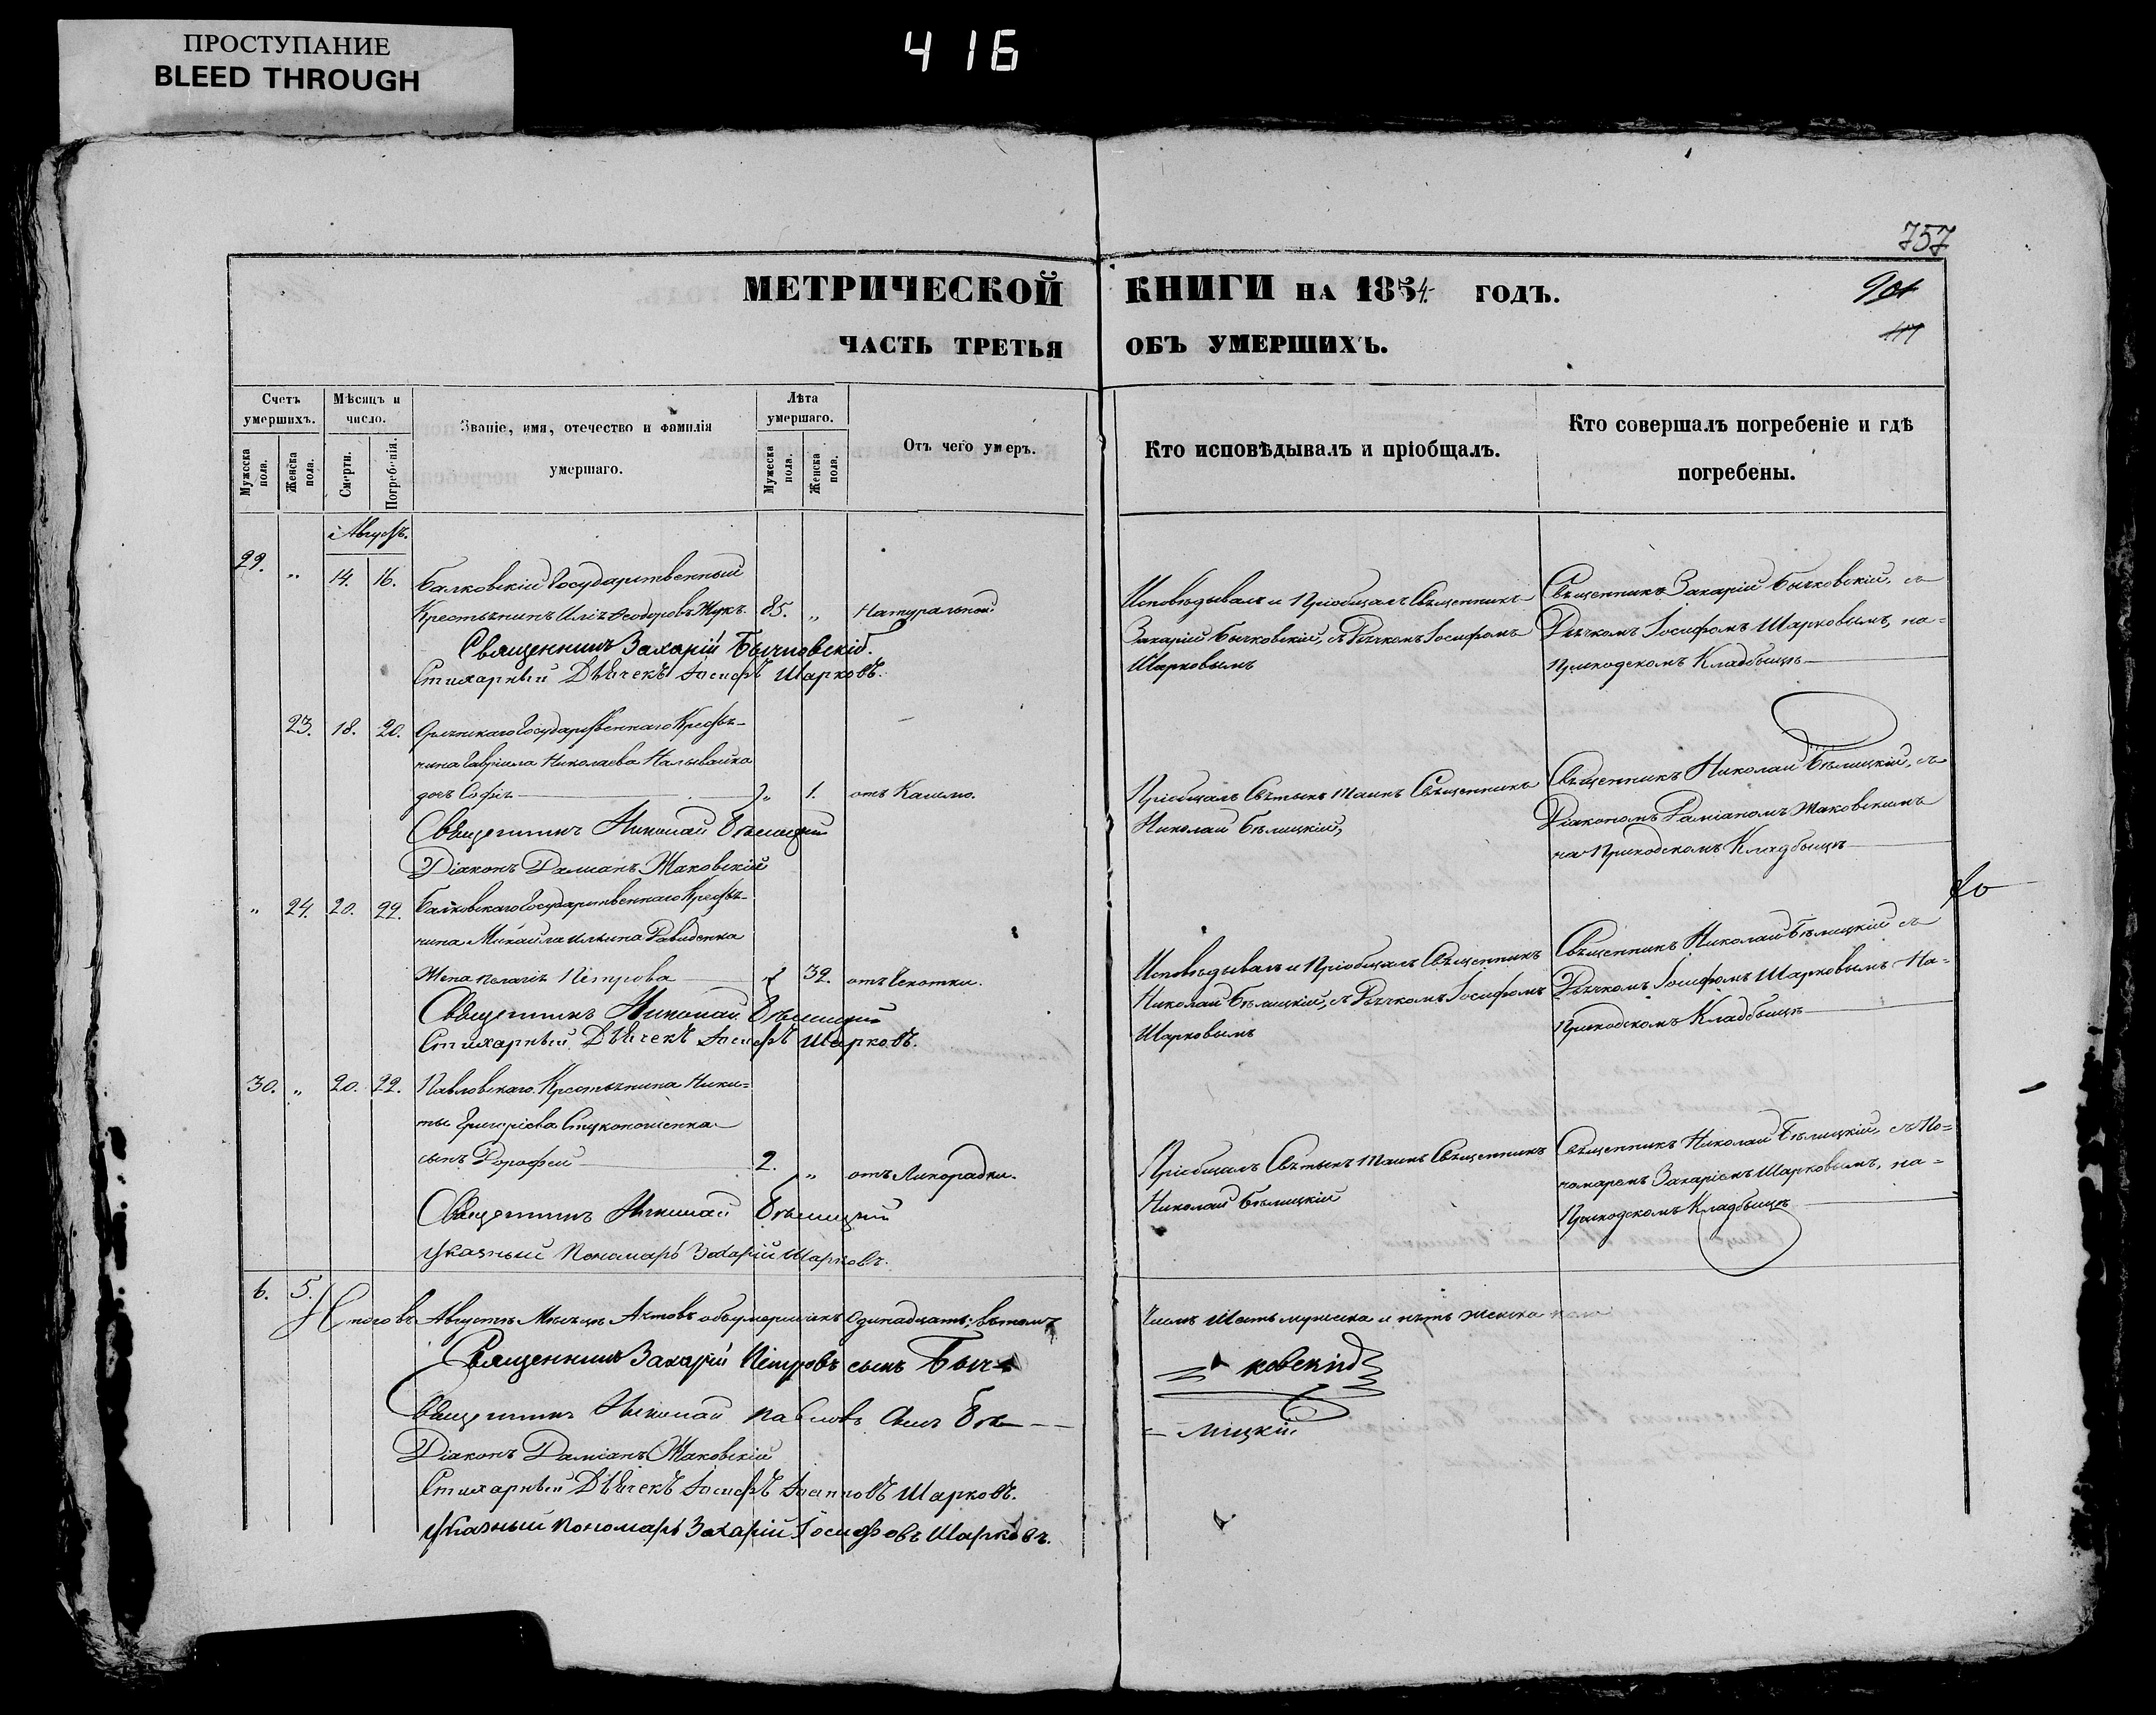 ПРОСТУПАНИЕ
BLEED THROUGH
416
757
МЕТРИЧЕСКОЙ КНИГИ НА 1854 ГОДЪ.
ЧАСТЬ ТРЕТЬЯ ОБЪ УМЕРШИХЪ.
Счетъ умершихъ.
Мужеска пола.
Женска пола.
Мѣсяцъ и число.
Смерти.
Погребенія.
Званіе, имя, отечество и фамилія
умершаго.
Лѣта умершаго.
Мужеска пола.
Женска пола.
Отъ чего умеръ.
Кто исповѣдывалъ и пріобщалъ.
Кто совершалъ погребеніе и гдѣ
погребены.
Августъ.
29. „ 14. 16. Балковскій Государственный
Крестьянинъ Илія Феодоровъ Жукъ. 85. „ Натуральной
Исповѣдывалъ и Пріобщалъ Священникъ
Захарій Бычковскій, съ Дьячкомъ Іосифомъ
Шарковымъ
Священникъ Захарій Бычковскій, съ
Дьячкомъ Іосифомъ Шарковымъ, на-
приходскомъ Кладбищѣ
Священникъ Захарій Бычковскій.
Стихарный Дьячекъ Іосифъ Шарковъ.
23. 18. 20. Государственнаго Крестья-
нина Гавріила Николаева Наливайка
дочь Софія „ 1. отъ Кашлю.
Пріобщалъ Святыхъ Таинъ Священникъ
Николай Бѣлицкій,
Священникъ Николай Бѣлицкій, съ
Діакономъ Даміаномъ Жаковскимъ
на Приходскомъ Кладбищѣ
Священникъ Николай Бѣлицкій
Діаконъ Даміанъ Жаковскій
„ 24. 20. 22. Балковскаго Государственнаго Крестья-
нина Михаила Ильина Давиденка
Жена Пелагія Петрова „ 32. отъ Чехотки.
Исповѣдывалъ и Пріобщалъ Священникъ
Николай Бѣлицкій, съ Дьячкомъ Іосифомъ
Шарковымъ
Священникъ Николай Бѣлицкій съ
Дьячкомъ Іосифомъ Шарковымъ На-
приходскомъ Кладбищѣ
Священникъ Николай Бѣлицкій
Стихарный Дьячекъ Іосифъ Шарковъ.
30. „ 20. 22. Павловскаго Крестьянина Ники=
ты Григоріева
сынъ Дорофей 2. „ отъ Лихорадки.
Пріобщалъ Святыхъ Таинъ Священникъ
Николай Бѣлицкій
Священникъ Николай Бѣлицкій, съ По=
номаремъ Захаріемъ Шарковымъ, на=
Приходскомъ Кладбищѣ
Священникъ Николай Бѣлицкій
Указный Пономарь Захарій Шарковъ.
6. 5.
Итого въ Августѣ Мѣсяцѣ Актовъ объ умершихъ Одинадцать; въ томъ
Числѣ Шесть мужеска и пять женска пола
Священникъ Захарій Петровъ сынъ Быч-
ковскій
Священникъ Николай Павловъ Сынъ Бѣ-
лицкій
Діаконъ Даміанъ Жаковскій
Стихарный Дьячекъ Іосифъ Шарковъ.
Указный Пономарь Захарій Іосифовъ Шарковъ.